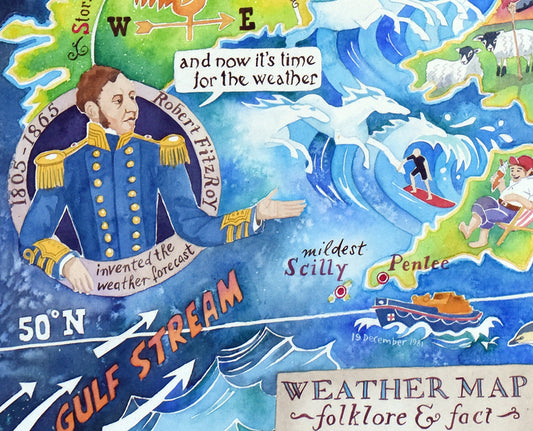 Stor
W
E
and now it's time
for the weather
1805-1865
Robert FitzRoy
invented the
weather forecast
mildest
Scilly
Penlee
50°N
GULF STREAM
19 December 1981
WEATHER MAP
folklore & fact